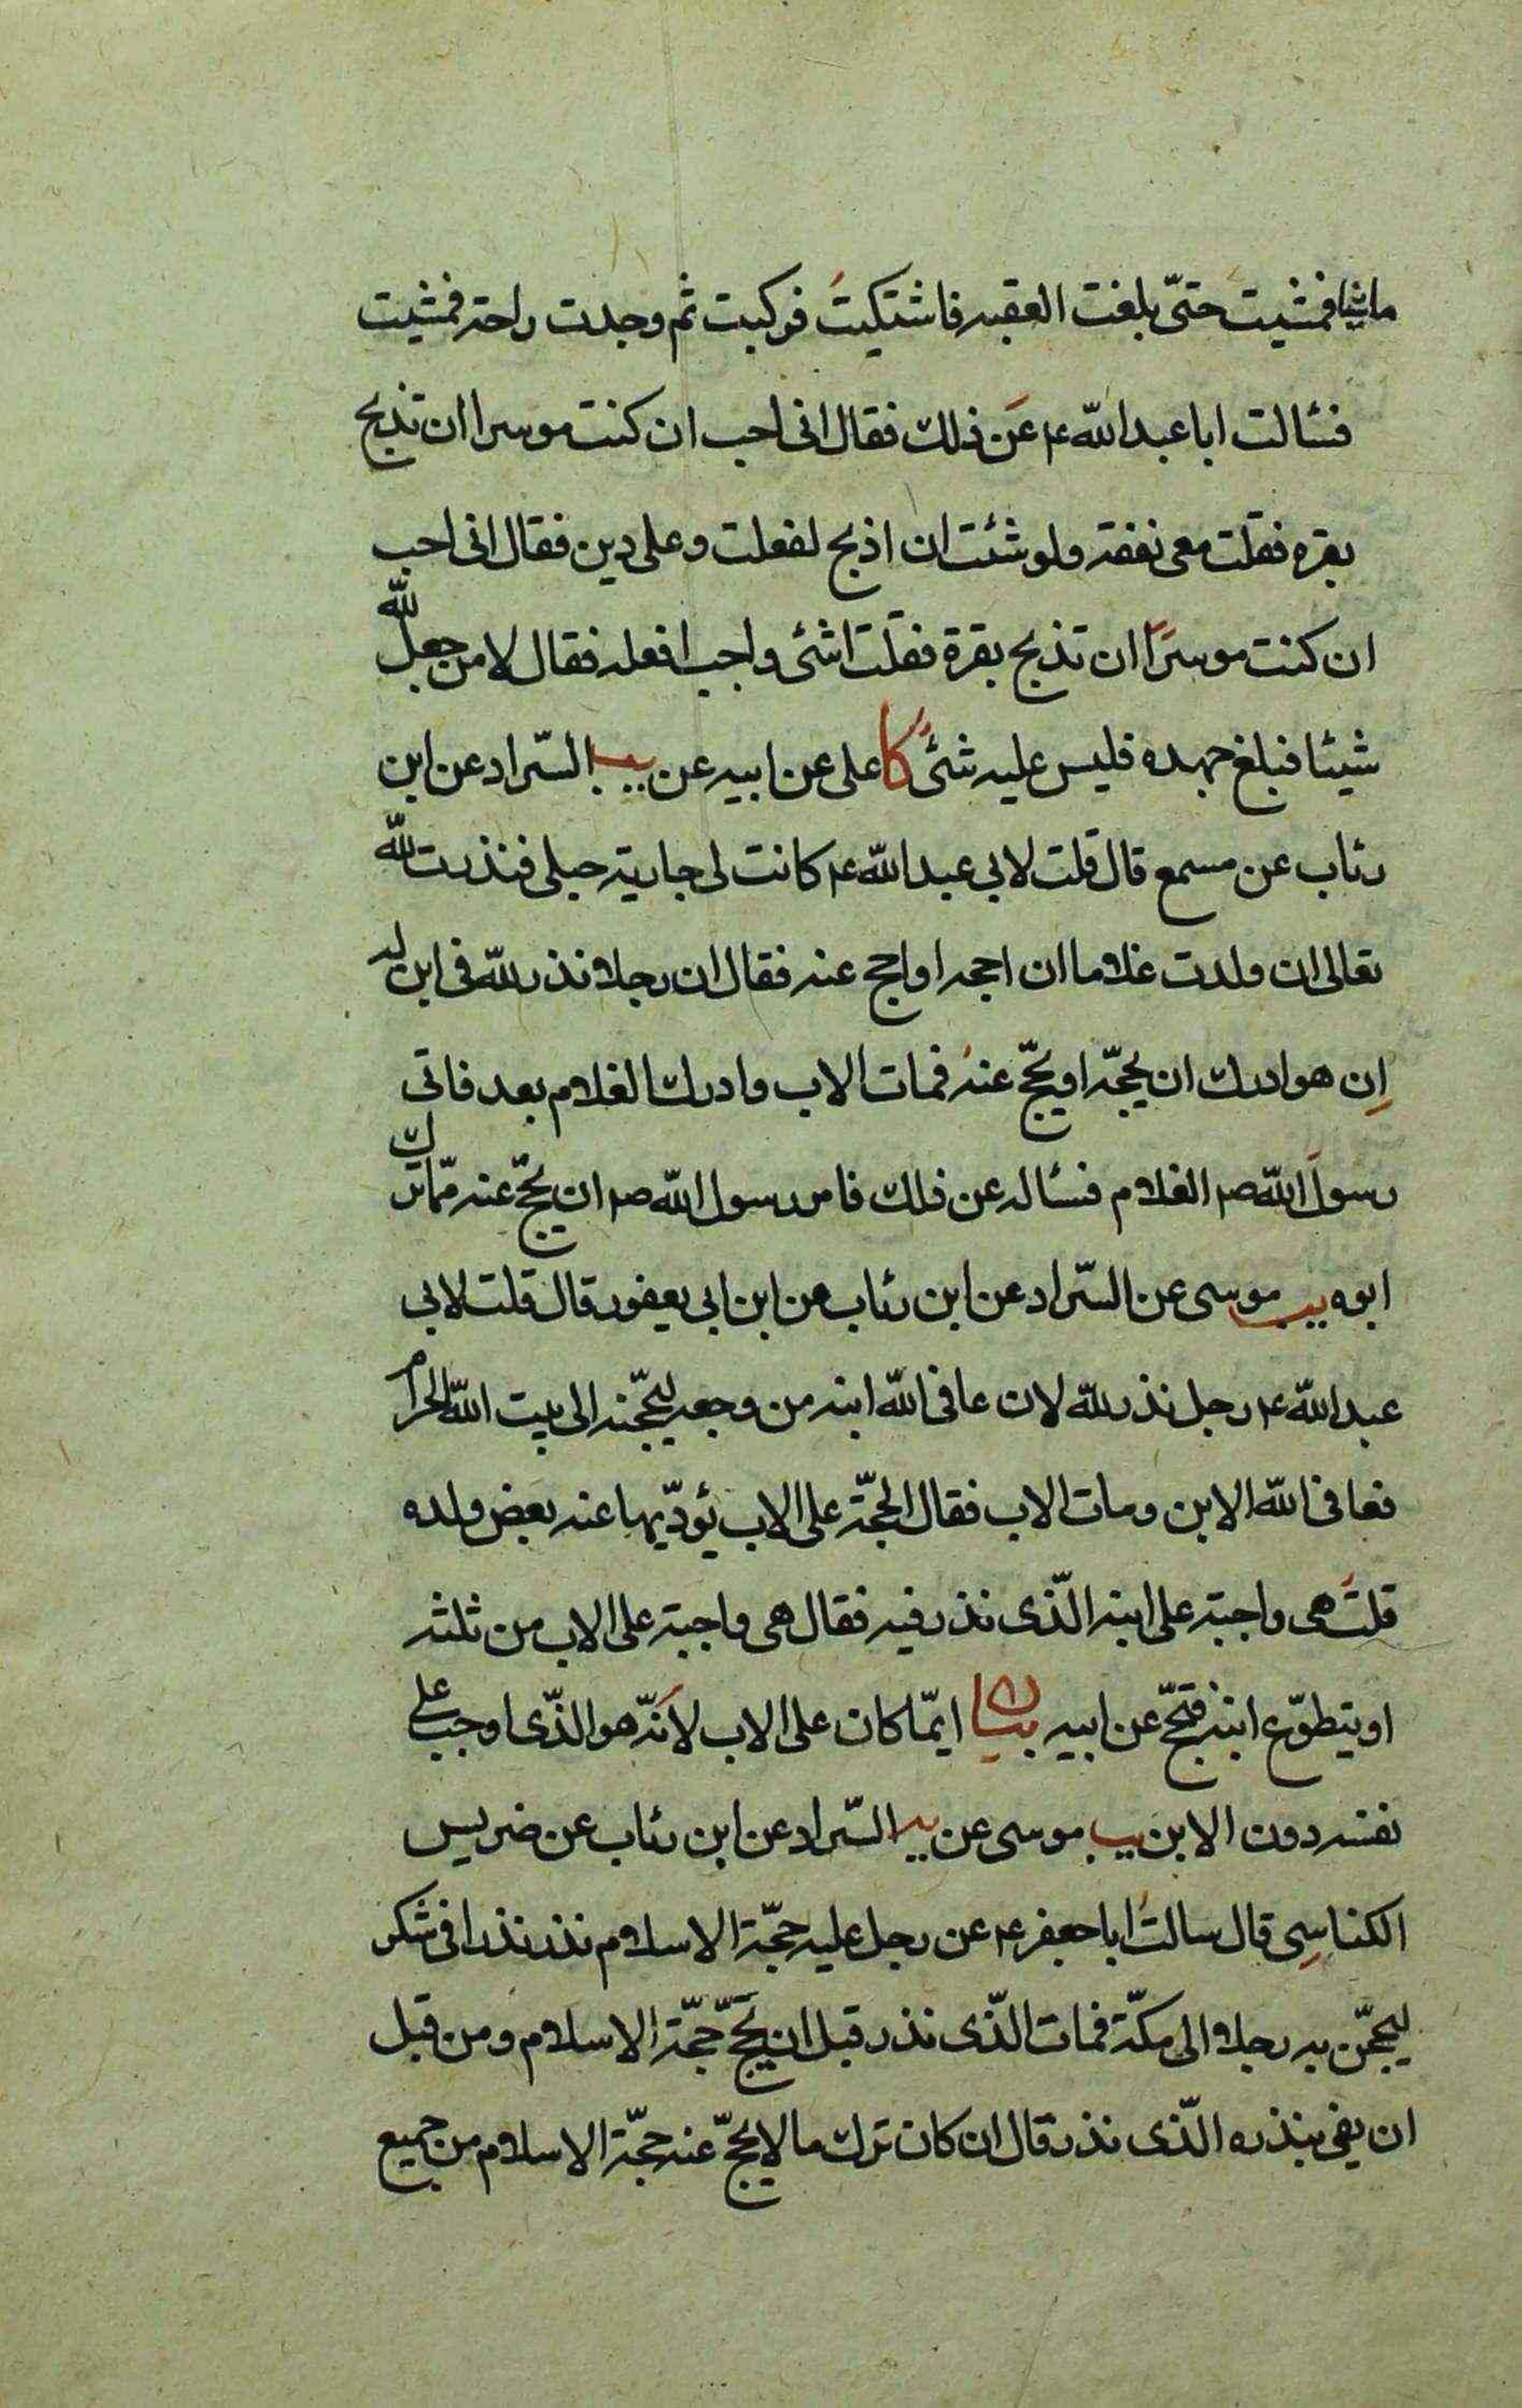 ماشيا فمشيت حتّى بلغت العقبه فاشتكيت فركبت ثم وجدت راحة فمشيت
فسئالت ابا عبد الله ع عن ذلك فقال انى احب ان كنت موسرا ان تذبح
بقره فقلت معى نفقة ولو شئت ان اذبح لفعلت وعلى دين فقال انى احب
ان كنت موسرًا ان تذبح بقرة فقلت اشئ واجب افعله فقال لا من جعل لله
شيئا فبلغ جهده فليس عليه شئ كا على عن ابيه عن السّراد عن ابن
رئاب عن مسمع قال قلت لابي عبد الله ع كانت لى جارية حبلى فنذرت لله
تعالى ان ولدت غلاما ان احجه او احج عنه فقال ان رجلا نذر لله فى ابن له
إن هو ادرك ان يحجّه او يحجّ عنه فمات الاب وادرك الغلام بعد فاتى
رسول الله ص الغلام فسئاله عن ذلك فامر رسول الله ص ان يحجّ عنه ممّا ترك
ابوه يب موسى عن السّراد عن ابن رئاب عن ابن ابى يعفور قال قلت لابى
عبد الله ع رجل نذر لله لان عافى الله ابنه من وجعه ليحجّنه الى بيت الله الحرام
فعافى الله الابن ومات الاب فقال الحجّة على الاب يؤدّيها عنه بعض ولده
قلت هى واجبة على ابنه الّذى نذر فيه فقال هى واجبة على الاب من ثلثه
او يتطوّع ابنه فحجّ عن ابيه بيان ايمّا كان على الاب لأنّه هو الذّى اوجب على
نفسه دون الابن يب موسى عن السّراد عن ابن رئاب عن ضريس
الكناسي قال سالت ابا جعفر ع عن رجل عليه حجّة الاسلام نذر نذرا فى شكر
ليحجّن به رجلا الى مكّة فمات الّذى نذر قبل ان يحجّ حجّة الاسلام ومن قبل
ان يفى بنذره الّذى نذر قال ان كان ترك مالا يحجّ عنه حجّة الاسلام من جميع